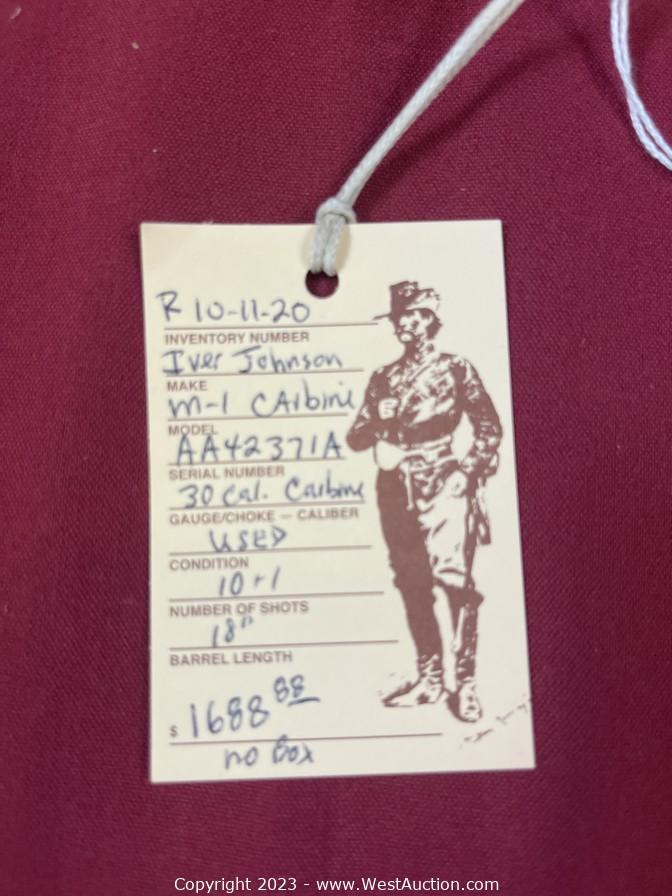 R 10-11-20
INVENTORY NUMBER
Iver Johnson
MAKE
M-1 CArbine
MODEL
AA42371A
SERIAL NUMBER
30 Cal. Carbine
GAUGE/CHOKE — CALIBER
USED
CONDITION
10+1
NUMBER OF SHOTS
18"
BARREL LENGTH
$ 1688 88
no Box
Copyright 2023 - www.WestAuction.com